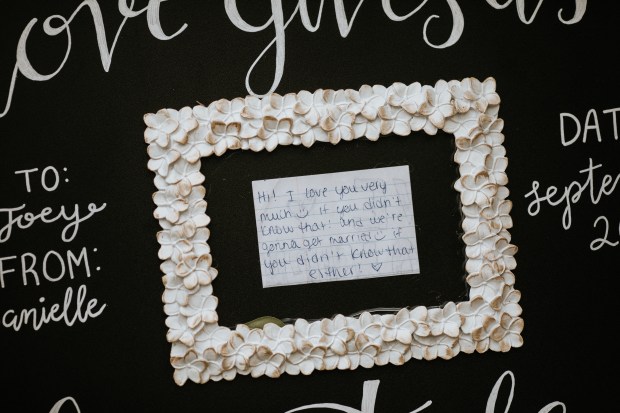 ove gives us
TO:
Joey
FROM:
anielle
Hi! I love you very
much☺ if you didn't
know that! and we're
gonna get married☺ if
you didn't know that
either! ♡
DAT
septe
2